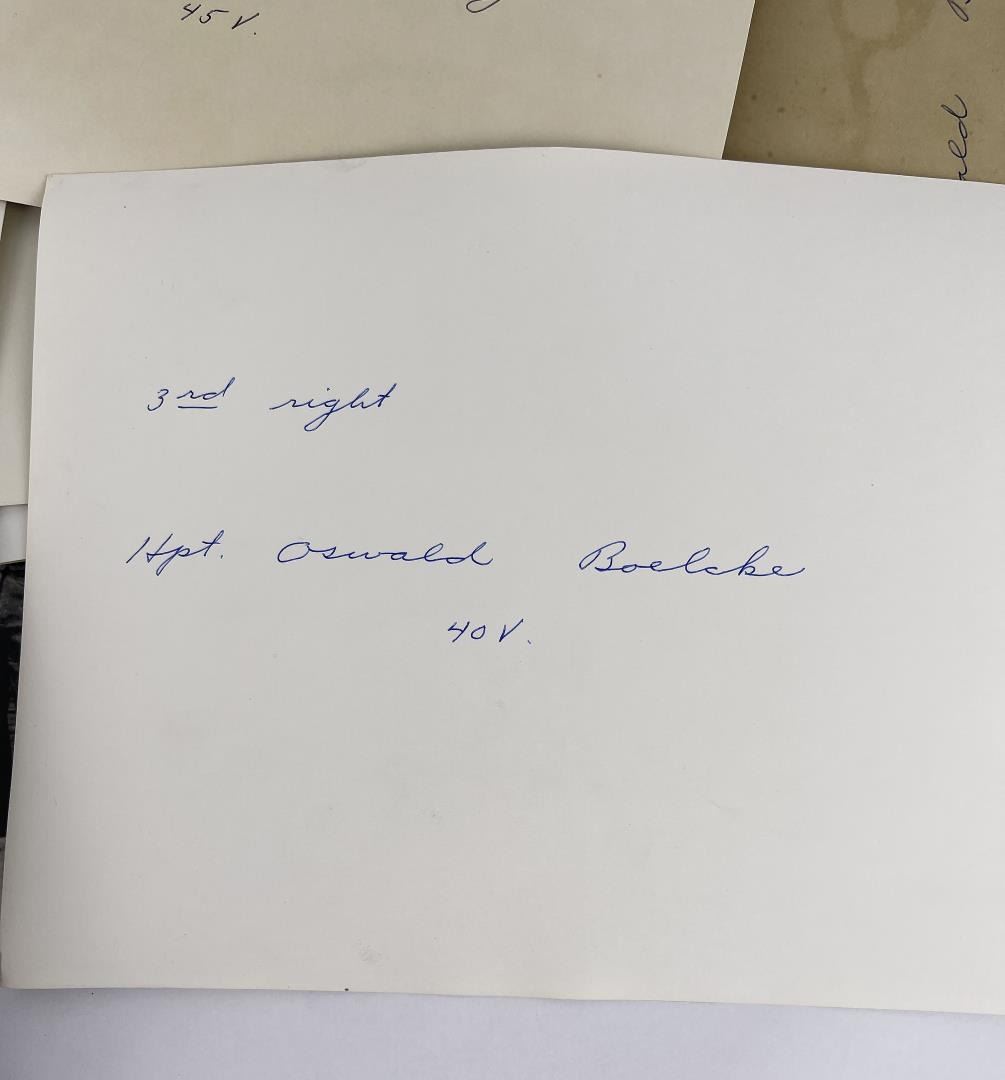 45 V.
ald
3rd right
Hpt. Oswald Boelcke
40 V.